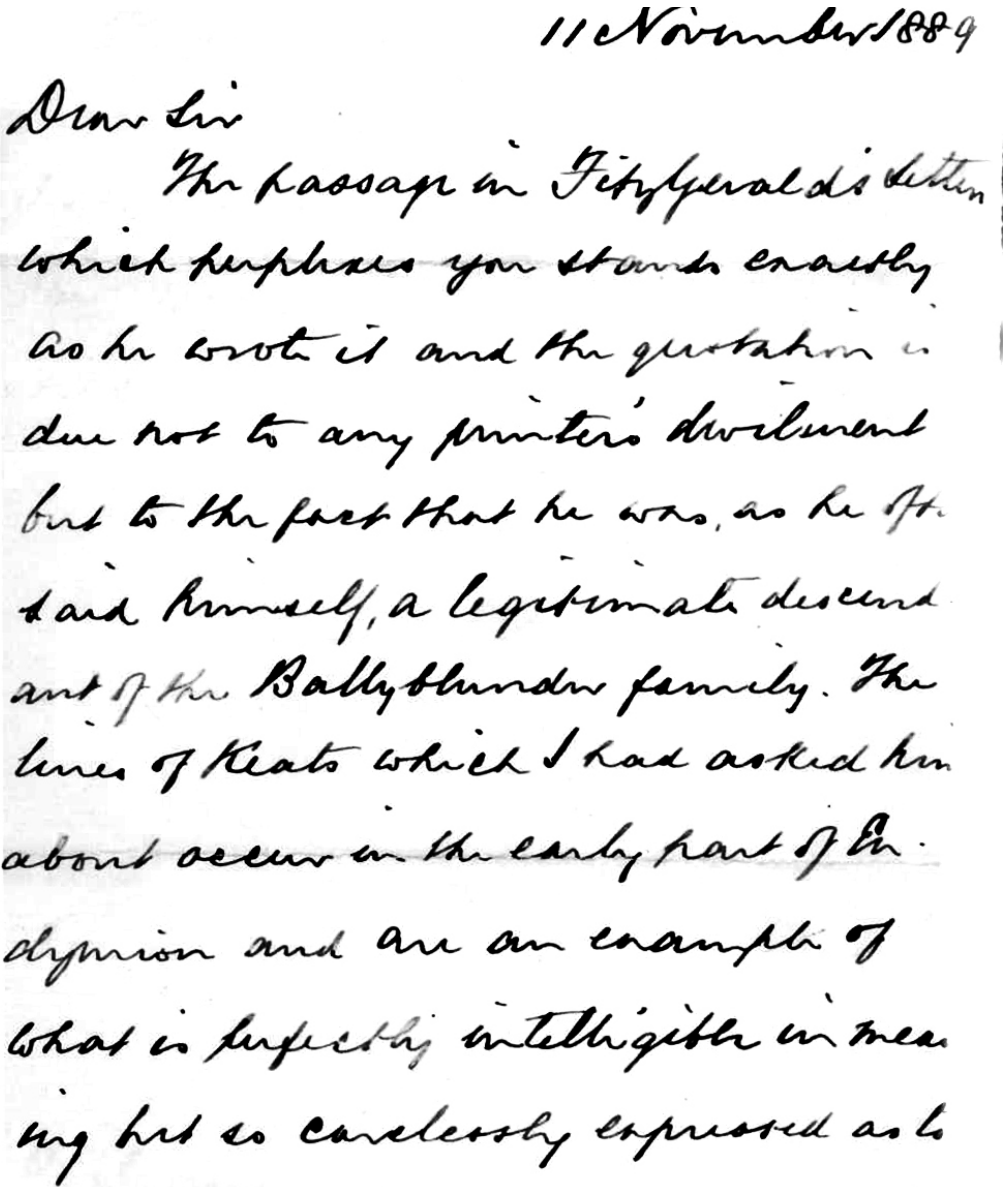 11 November 1889
Dear Sir
The passage in FitzGerald's letters
which perplexes you stands exactly
as he wrote it and the quotation is
due not to any printer's devilment
but to the fact that he was, as he oft
said himself, a legitimate descend
ant of the Ballyblunder family. The
lines of Keats which I had asked him
about occur in the early part of En
dymion and are an example of
what is perfectly intelligible in mean
ing but so carelessly expressed as to